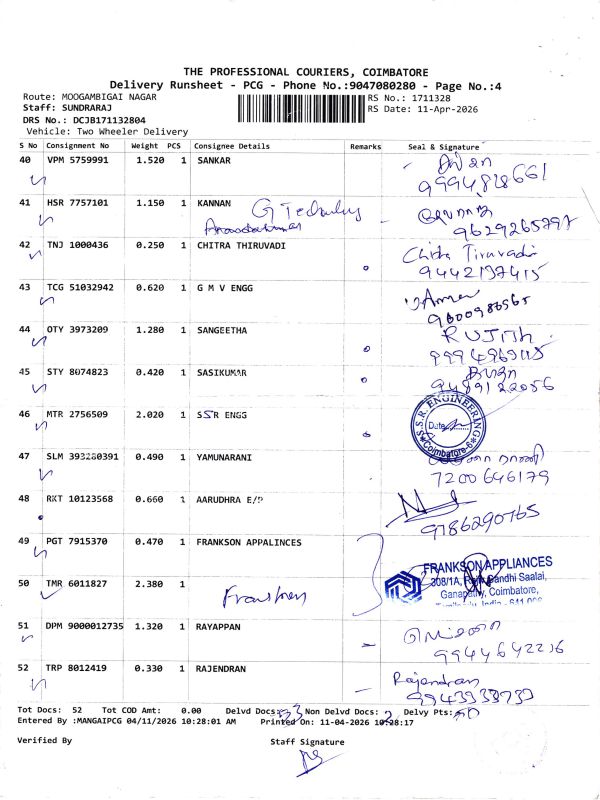 THE PROFESSIONAL COURIERS, COIMBATORE
Delivery Runsheet - PCG - Phone No.:9047080280 - Page No.:4
Route: MOOGAMBIGAI NAGAR
RS No.: 1711328
Staff: SUNDRARAJ
RS Date: 11-Apr-2026
DRS No.: DCJB171132804
Vehicle: Two Wheeler Delivery
S No Consignment No Weight PCS Consignee Details Remarks Seal & Signature
40 VPM 5759991 1.520 1 SANKAR
41 HSR 7757101 1.150 1 KANNAN
9629265797
42 TNJ 1000436 0.250 1 CHITRA THIRUVADI Chitra Tiruvadi
9442197415
43 TCG 51032942 0.620 1 G M V ENGG
9600986565
44 OTY 3973209 1.280 1 SANGEETHA
45 STY 8074823 0.420 1 SASIKUMAR
9489122056
46 MTR 2756509 2.020 1 SSR ENGG
S.S.R. ENGINEERING
Date
Coimbatore-6
47 SLM 393280391 0.490 1 YAMUNARANI
7200646179
48 RKT 10123568 0.660 1 AARUDHRA E/P
9786290765
49 PGT 7915370 0.470 1 FRANKSON APPALINCES
FRANKSON APPLIANCES
308/1A, Gandhi Saalai,
Ganapathy, Coimbatore,
50 TMR 6011827 2.380 1
51 DPM 9000012735 1.320 1 RAYAPPAN
9944642216
52 TRP 8012419 0.330 1 RAJENDRAN Rajendran
Tot Docs: 52 Tot COD Amt: 0.00 Delvd Docs: Non Delvd Docs: 2 Delvy Pts: 50
Entered By :MANGAIPCG 04/11/2026 10:28:01 AM Printed On: 11-04-2026 10:28:17
Verified By Staff Signature